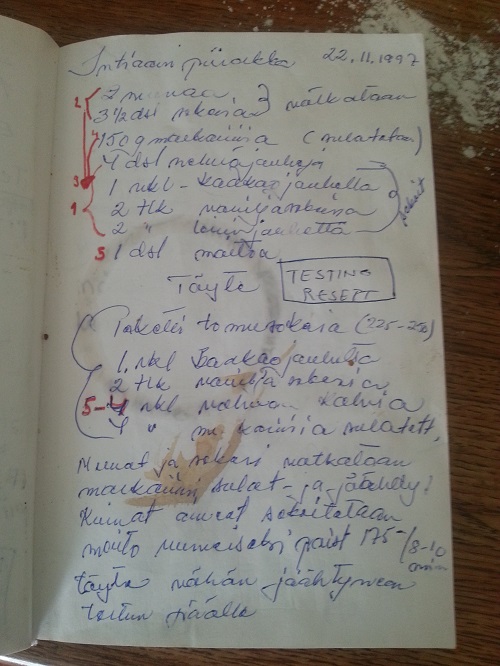 Intiaani piirakka 22.11.1997
2 munaa
3 ½ dsl sokeria vatkataan
150 g markariinia (sulatetaan)
4 dsl vehnäjauhoja
1 rkl kaakaojauhetta
2 tlk vaniljasokeria
2 " leivinjauhetta
5 1 dsl maitoa
Täyte
TESTING
RESEPT
Paketti tomusokeria (225-250)
1 rkl kaakaojauhetta
2 tlk vanilja sokeria
5-4 rkl vahvaa kahvia
4 " sulatett.
Munat ja sokeri vatkataan
markariini sulat- ja jäähdy.
Kuivat aineet sekoitetaan
maito viimeiseksi paist 175° / 8-10 min
täyte vähän jäähtyneen
tortun päälle